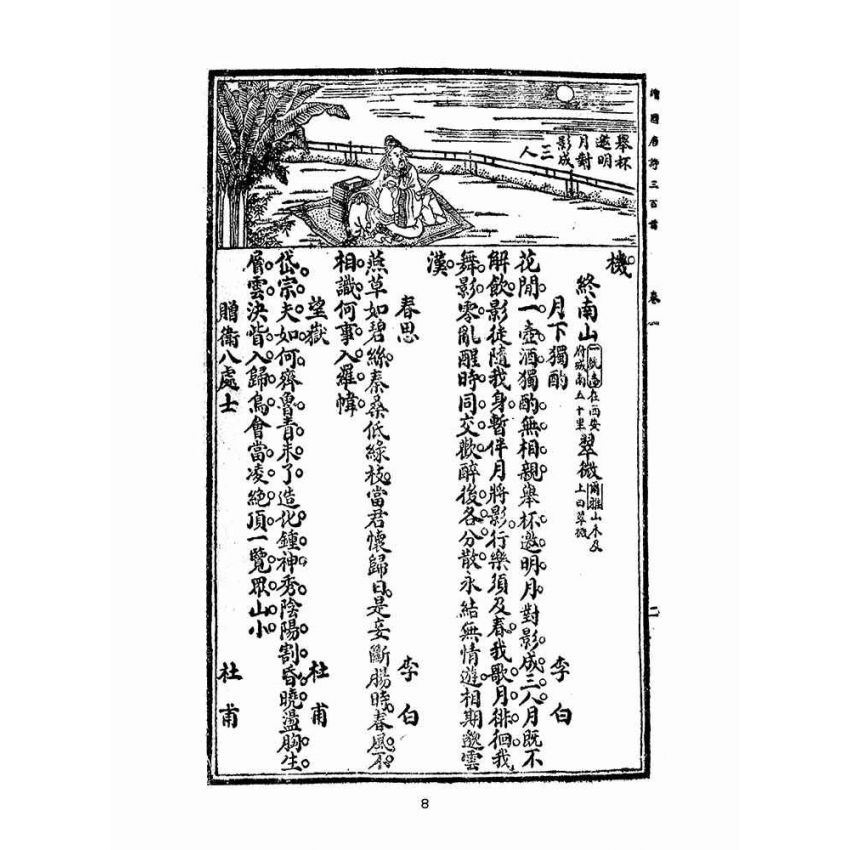 圖唐詩三百首 卷一 二
舉杯
邀明
月對
影成
三
人
機
終南山 一統志在西安府城南五十里 翠微 爾雅山未及上曰翠微
月下獨酌 李白
花間一壺酒獨酌無相親舉杯邀明月對影成三人月既不
解飲影徒隨我身暫伴月將影行樂須及春我歌月徘徊我
舞影零亂醒時同交歡醉後各分散永結無情遊相期邈雲
漢
春思 李白
燕草如碧絲秦桑低綠枝當君懷歸日是妾斷腸時春風不
相識何事入羅幃
望嶽 杜甫
岱宗夫如何齊魯青未了造化鍾神秀陰陽割昏曉盪胸生
層雲決眥入歸鳥會當凌絕頂一覽眾山小
贈衛八處士 杜甫
8